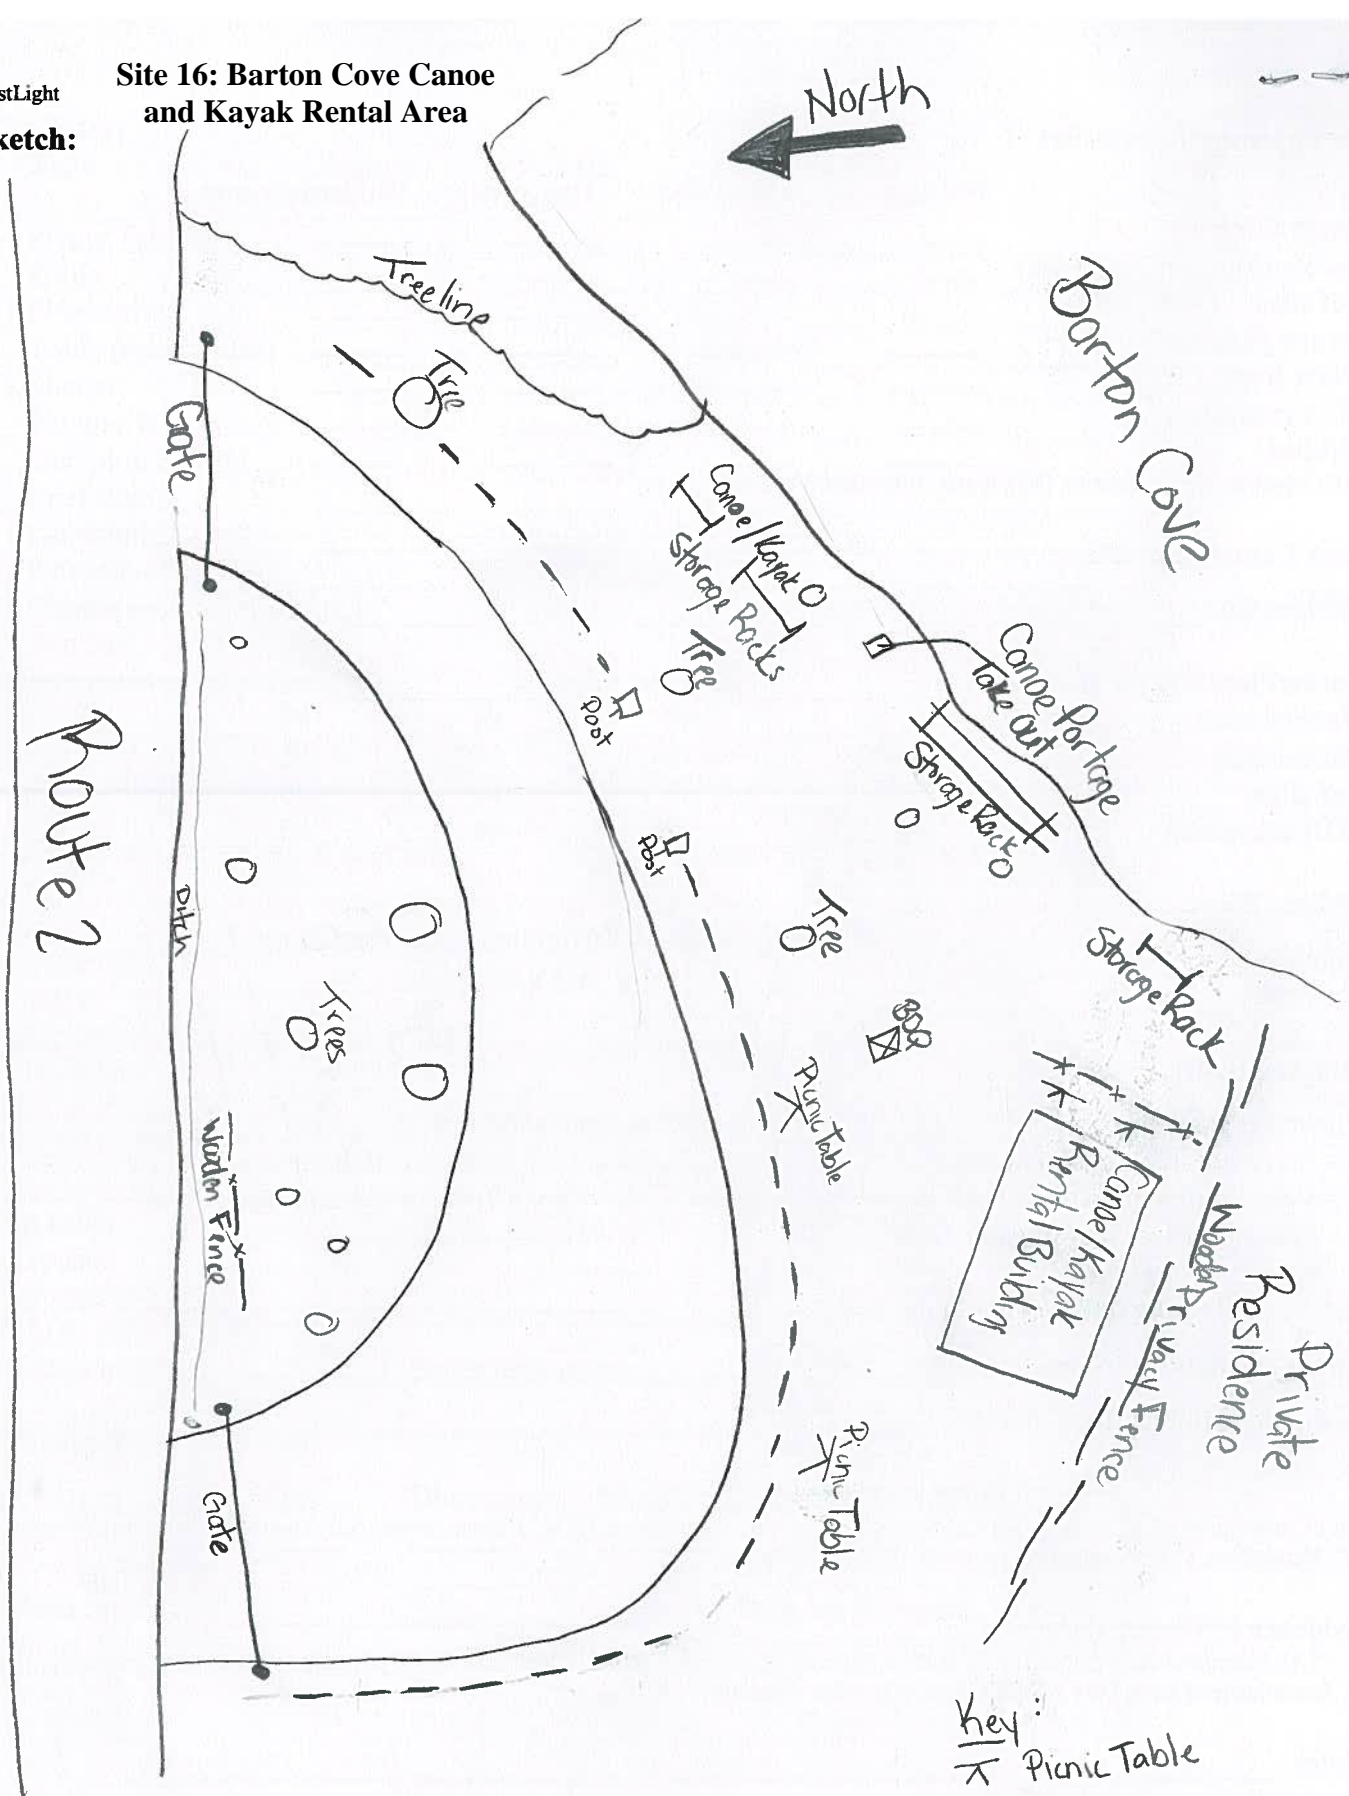 stLight
ketch:
Site 16: Barton Cove Canoe
and Kayak Rental Area
North
Barton Cove
Treeline
Tree
Gate
Canoe/Kayak
Storage Racks
Tree
Post
Canoe Portage
Take Out
Storage Rack
Route 2
Ditch
Post
Tree
Storage Rack
BBQ
Trees
Picnic Table
Canoe/Kayak
Rental Building
Wooden Fence
Wooden Privacy Fence
Private
Residence
Picnic Table
Gate
Key:
Picnic Table